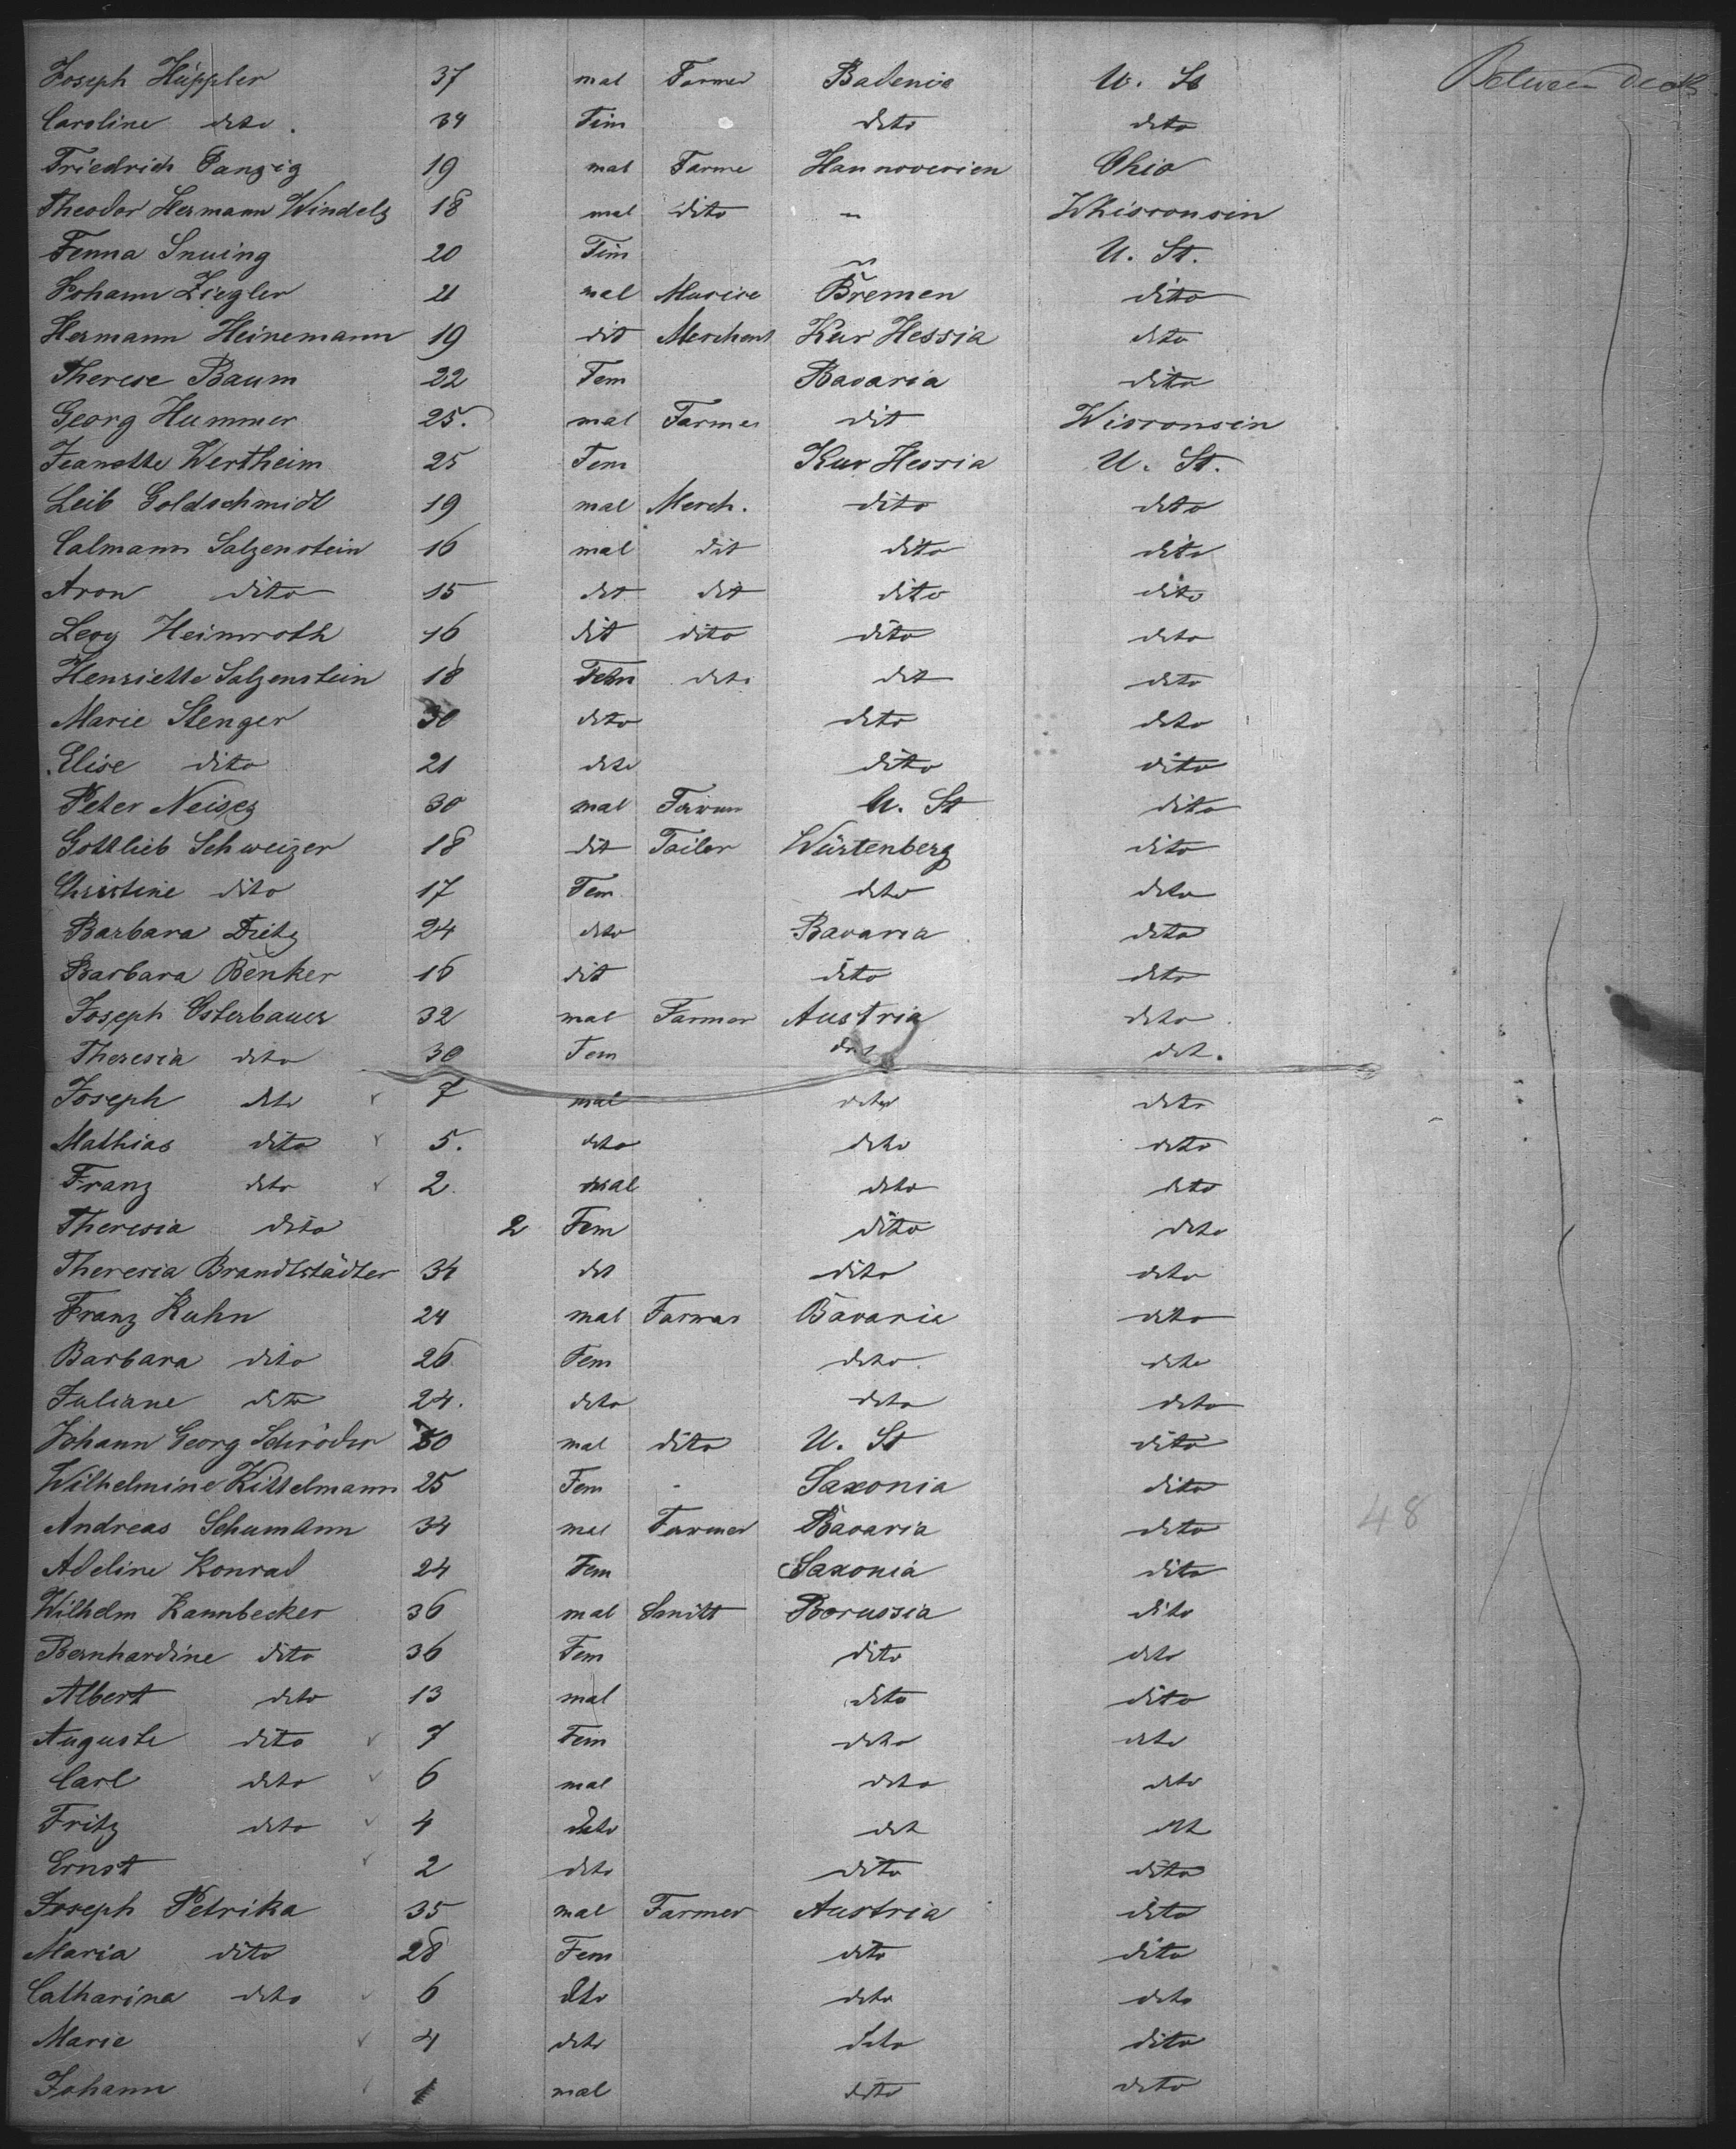 Joseph Hüppler 37 mal Farmer Badenia U. St Between decks
Caroline dito. 34 Fem dito dito
Friedrich Panzig 19 mal Farme Hannoverien Ohio
Theodor Hermann Windels 18 mal dito " Whisconsin
Fenna Snuing 20 Fem " U. St.
Johann Ziegler 21 mal Bremen dito
Hermann Heinemann 19 dit Merchent Kur Hessia dito
Therese Baum 22 Fem Bavaria dito
Georg Hummer 25. mal Farmer dit Wisconsin
Jeanette Wertheim 25 Fem Kur Hessia U. St.
Leib Goldschmidt 19 mal Merch. dito dito
Calmann Salzenstein 16 mal dit dito dito
Aron dito 15 dit dit dito dito
Levy Heimroth 16 dit dito dito dito
Henriette Salzenstein 18 Fem dito dit dito
Marie Stenger 30 dito dito dito
Elise dito 21 dito dito dito
Peter 30 mal U. St dito
Gottlieb Schweizer 18 dit Tailor Würtenberg dito
Christine dito 17 Fem dito dito
Barbara Dietz 24 dito Bavaria dito
Barbara Benker 16 dit dito dito
Joseph Osterbauer 32 mal Farmer Austria dito
Theresia dito 30 Fem dit dit.
Joseph dito 7 mal dito dito
Mathias dito 5. dito dito dito
Franz dito 2 mal dito dito
Theresia dito 2 Fem dito dito
Theresia Brandtstädter 34 dit dito dito
Franz Kuhn 24 mal Farmer Bavaria dito
Barbara dito 26 Fem dito dito
Juliane dito 24. dito dito dito
Johann Georg Schröder 50 mal dito U. St dito
Wilhelmine Kittelmann 25 Fem - Saxonia dito
Andreas Schumann 34 mal Farmer Bavaria dito 48
Adeline Konrad 24 Fem Saxonia dito
Wilhelm Kannbecker 36 mal Smitt Borussia dito
Bernhardine dito 36 Fem dito dito
Albert dito 13 mal dito dito
Auguste dito 7 Fem dito dito
Carl dito 6 mal dito dito
Fritz dito 4 dito dit dit
Ernst 2 dito dito dito
Joseph Petrika 35 mal Farmer Austria dito
Maria dito 28 Fem dito dito
Catharina dito 6 dito dito dito
Marie 4 dito dito dito
Johann 1 mal dito dito